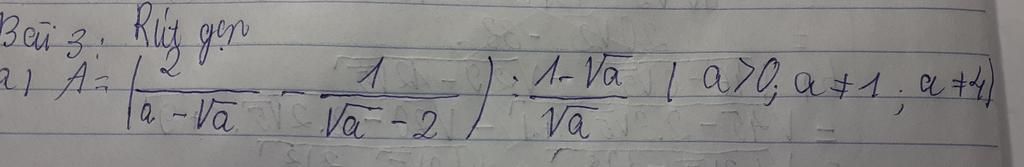 Bài 3: Rút gọn
a) A = (2/(a - √a) - 1/(√a - 2)) : (1 - √a)/√a ( a > 0; a ≠ 1; a ≠ 4)